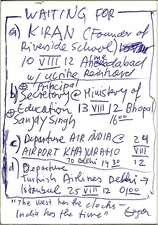 WAITING FOR
a) KIRAN (Founder of
Riverside School)
10 VIII 12 Ahmedabad
w/ Ulrike Reinhard
b) Principal
Secretary @ Ministry of
Education 13 VIII 12 Bhopal
Sanjay Singh 16:00
c) Departure AIR INDIA @ 24
AIRPORT KHAJURAHO VIII
To Delhi 14 30 12
d) Departure
Turkish Airlines Delhi →
Istanbul 25 VIII 12 0100
"The West has the clocks -
India has the time"